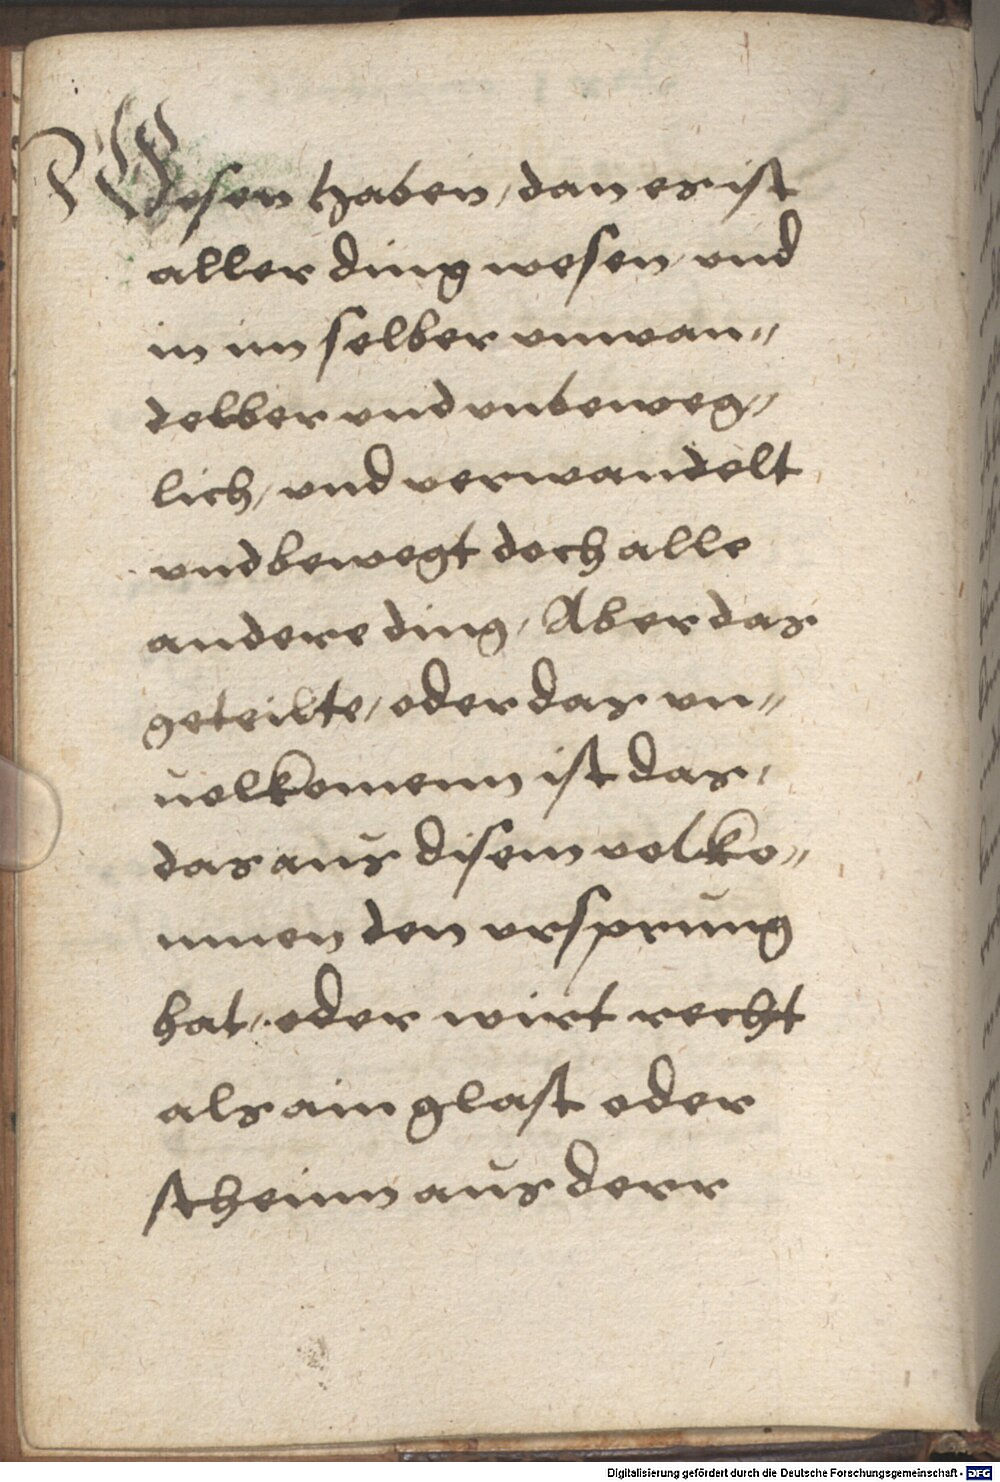 Wesen haben, dan es ist
aller ding wesen, vnd
in im selber vnwan=
delber vnd vnbeweg=
lich, vnd verwandelt
vnd bewegt doch alle
andere ding, Aber das
geteilte, oder das vn=
uolkomenn ist das,
das aus disem volko=
mmen den vrsprung
hat, oder wirt recht
als ain glast oder
scheinn aus derr
Digitalisierung gefördert durch die Deutsche Forschungsgemeinschaft - DFG